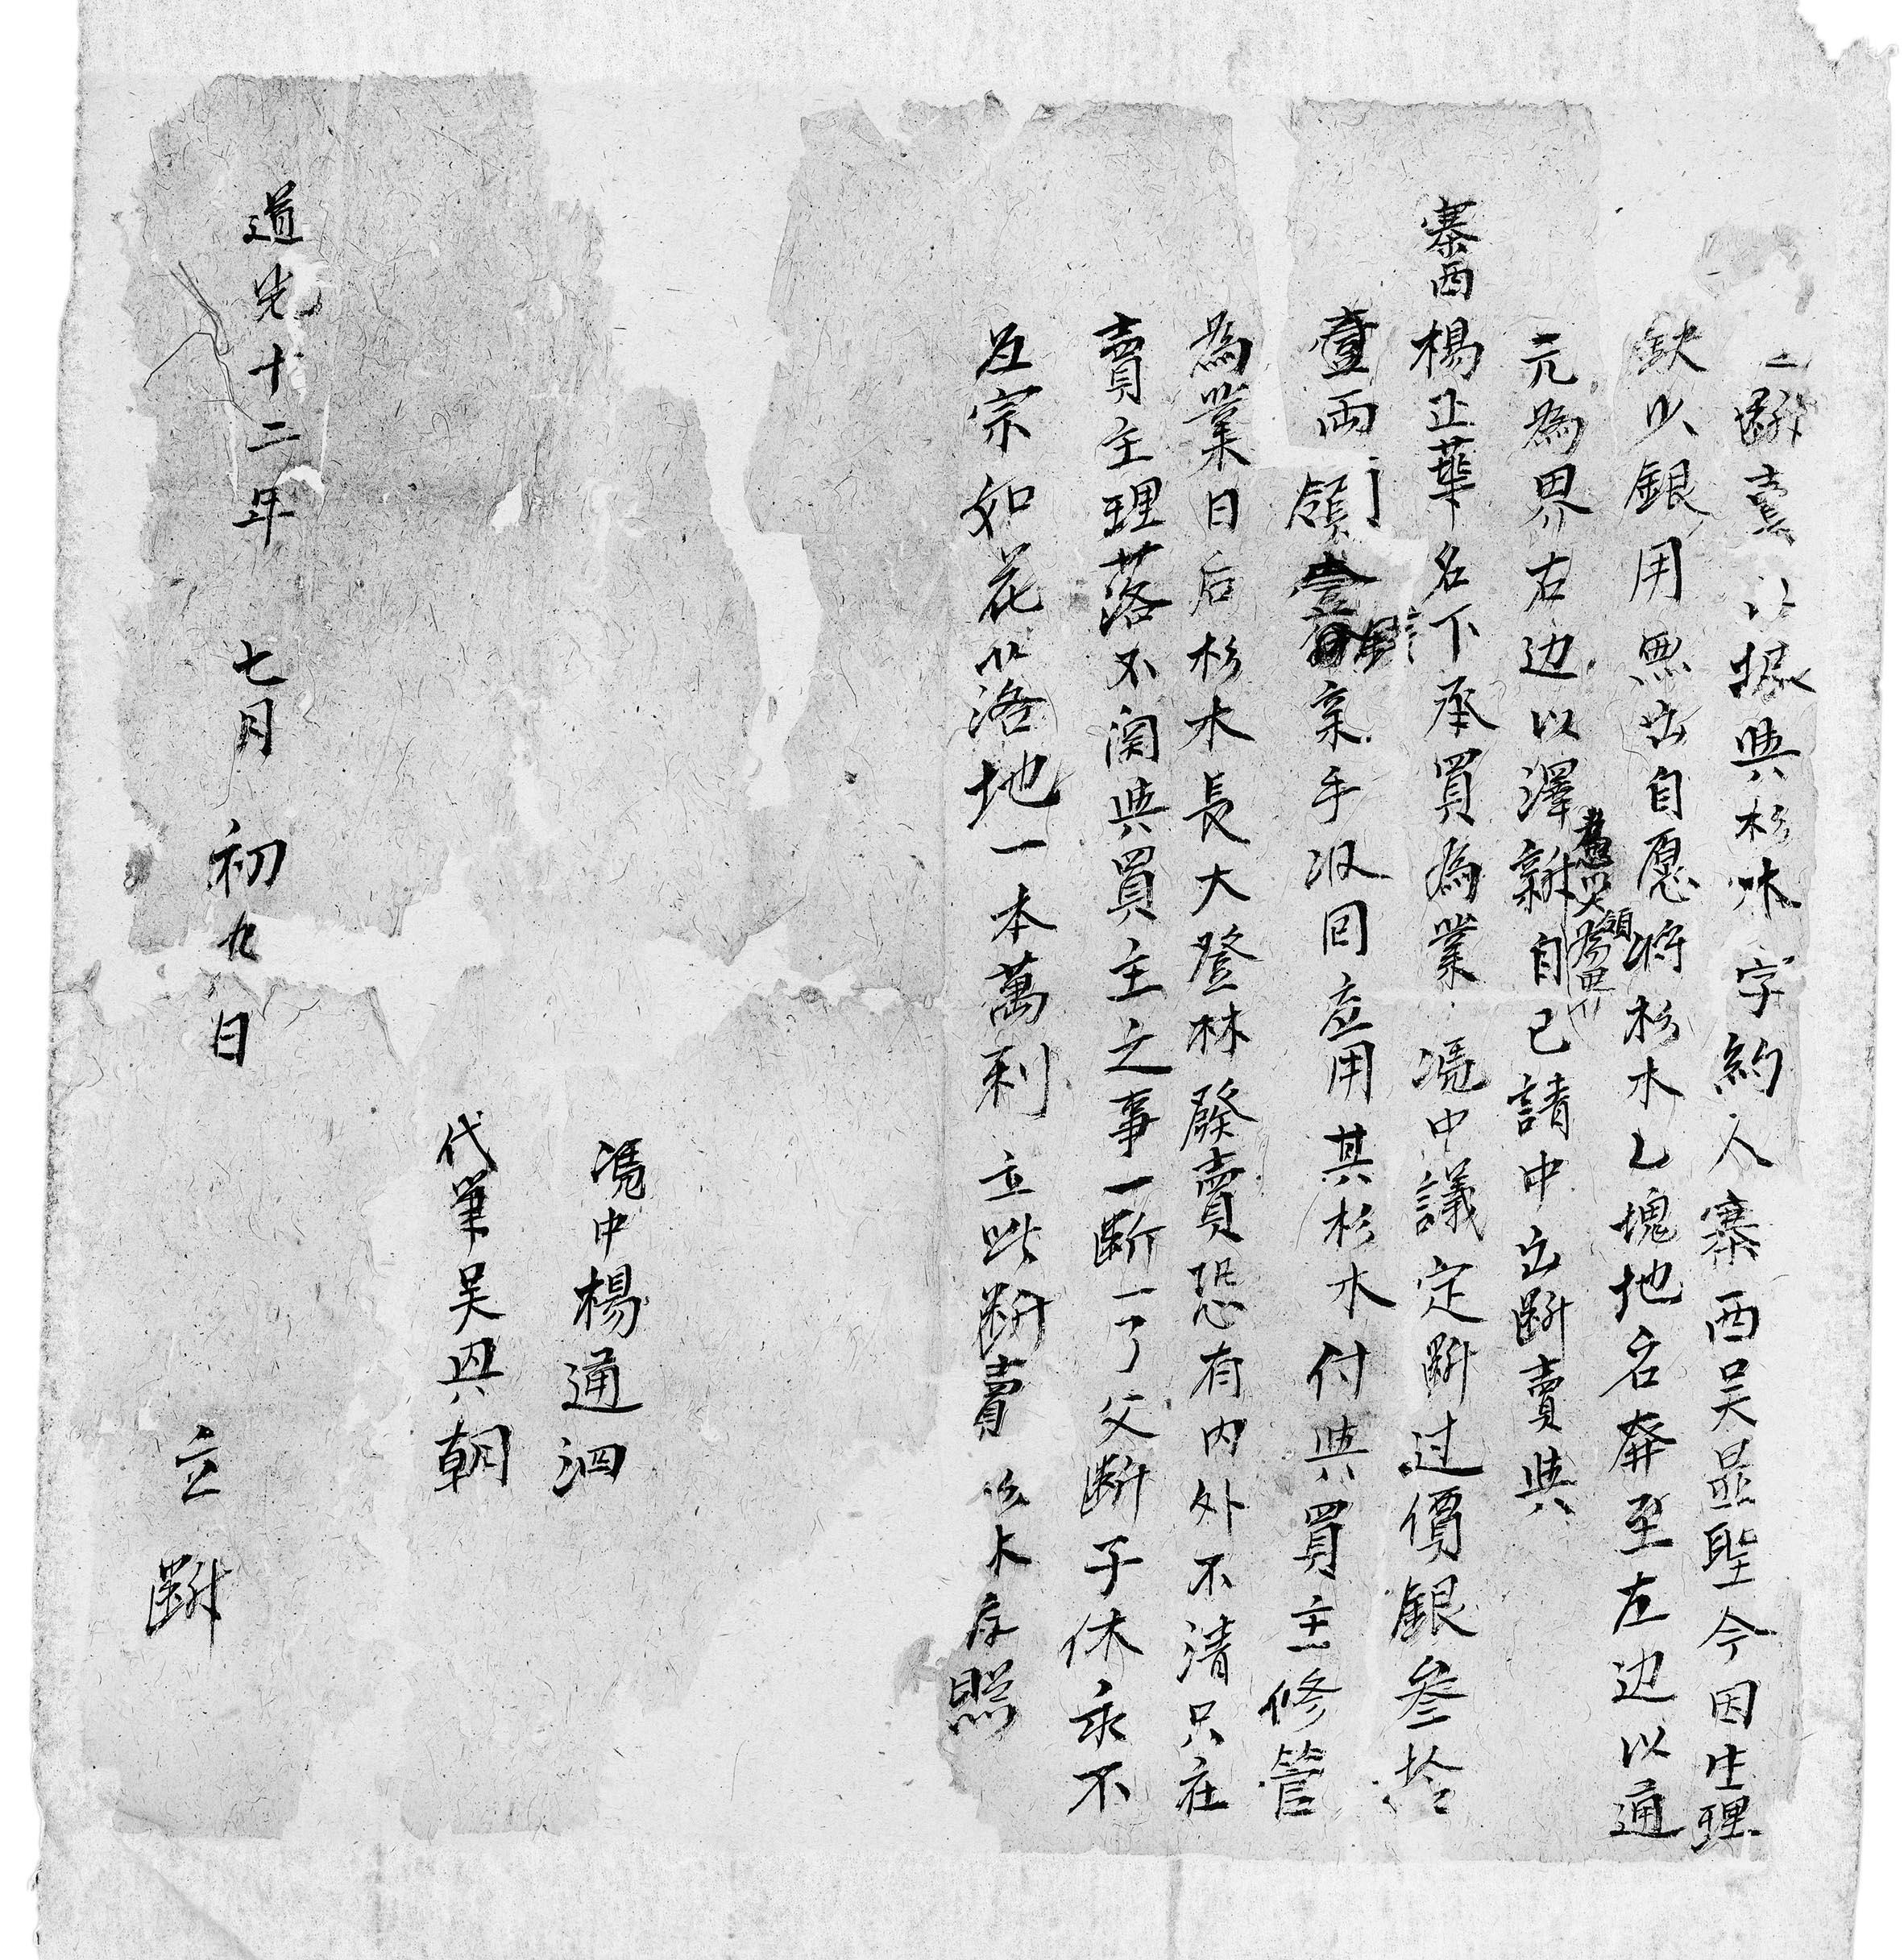 立斷賣與杉木字約人寨西吴显聖今因生理
缺少銀用無出自愿將杉木乙塊地名犇至左边以通
嶺為界
元為界右边以澤新自己請中出斷賣與
寨西楊正華名下承買為業憑中議定斷过價銀叁拾
壹兩領親手收回应用其杉木付與買主修管
為業日后杉木長大登林發賣恐有内外不清只在
賣主理落不関與買主之事一斷一了父斷子休永不
归宗如花落地一本萬利立此斷賣存照
憑中楊通泗
代筆吴興朝
道光十二年七月初九日
立斷